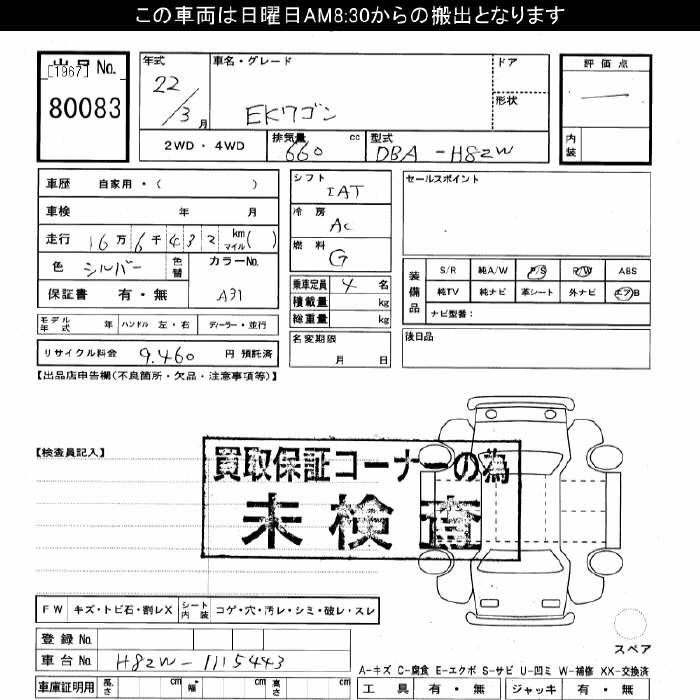 この車両は日曜日AM8:30からの搬出となります
出品 No. [1967]
80083
年式 22/3月
車名・グレード EKワゴン
ドア
形状
評価点 —
内装
2WD・4WD
排気量 660 cc
型式 DBA-H82W
車歴 自家用・( )
車検 年 月
走行 16万6千432 km マイル( )
色 シルバー 色替
カラーNo. A31
保証書 有・無
シフト IAT
冷房 AC
燃料 G
乗車定員 4 名
積載量 kg
総重量 kg
セールスポイント
装備品
S/R 純A/W P/S P/W ABS
純TV 純ナビ 革シート 外ナビ エアB
ナビ型番:
モデル年式 年 ハンドル 左・右 ディーラー・並行
リサイクル料金 9,460 円 預託済
名変期限 月 日
後日品
【出品店申告欄(不良箇所・欠品・注意事項等)】
【検査員記入】
買取保証コーナーの為
未検査
FW キズ・トビ石・割レX シート内装 コゲ・穴・汚レ・シミ・破レ・スレ
登録 No.
車台 No. H82W-1115443
スペア
A-キズ C-腐食 E-エクボ S-サビ U-凹ミ W-補修 XX-交換済
車庫証明用 長さ cm 幅 cm 高さ cm
工具 有・無 ジャッキ 有・無